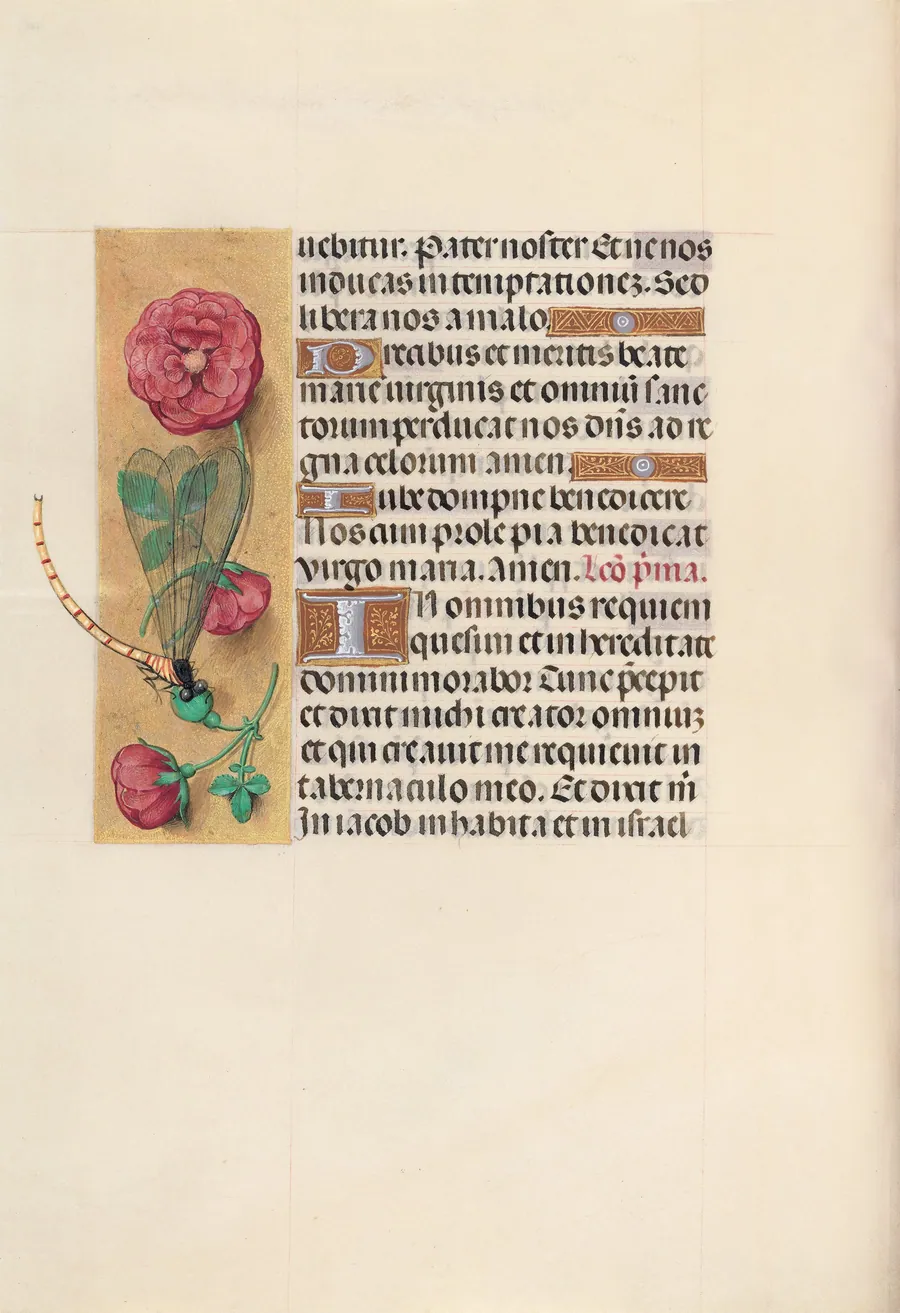 uebitur. Pater noster Et ne nos
inducas in temptationez. Sed
libera nos a malo
Precibus et meritis beate
marie uirginis et omniū sanc
torum perducat nos dn̄s ad re
gna celorum amen.
Iube dompne benedicere
Nos cum prole pia benedicat
virgo maria. Amen. Leō p̄ma.
IN omnibus requiem
quesiui et in hereditate
domini morabor Tunc p̄cepit
et dixit michi creator omniuz
et qui creauit me requieuit in
tabernaculo meo. Et dixit m̄
In iacob inhabita et in israel